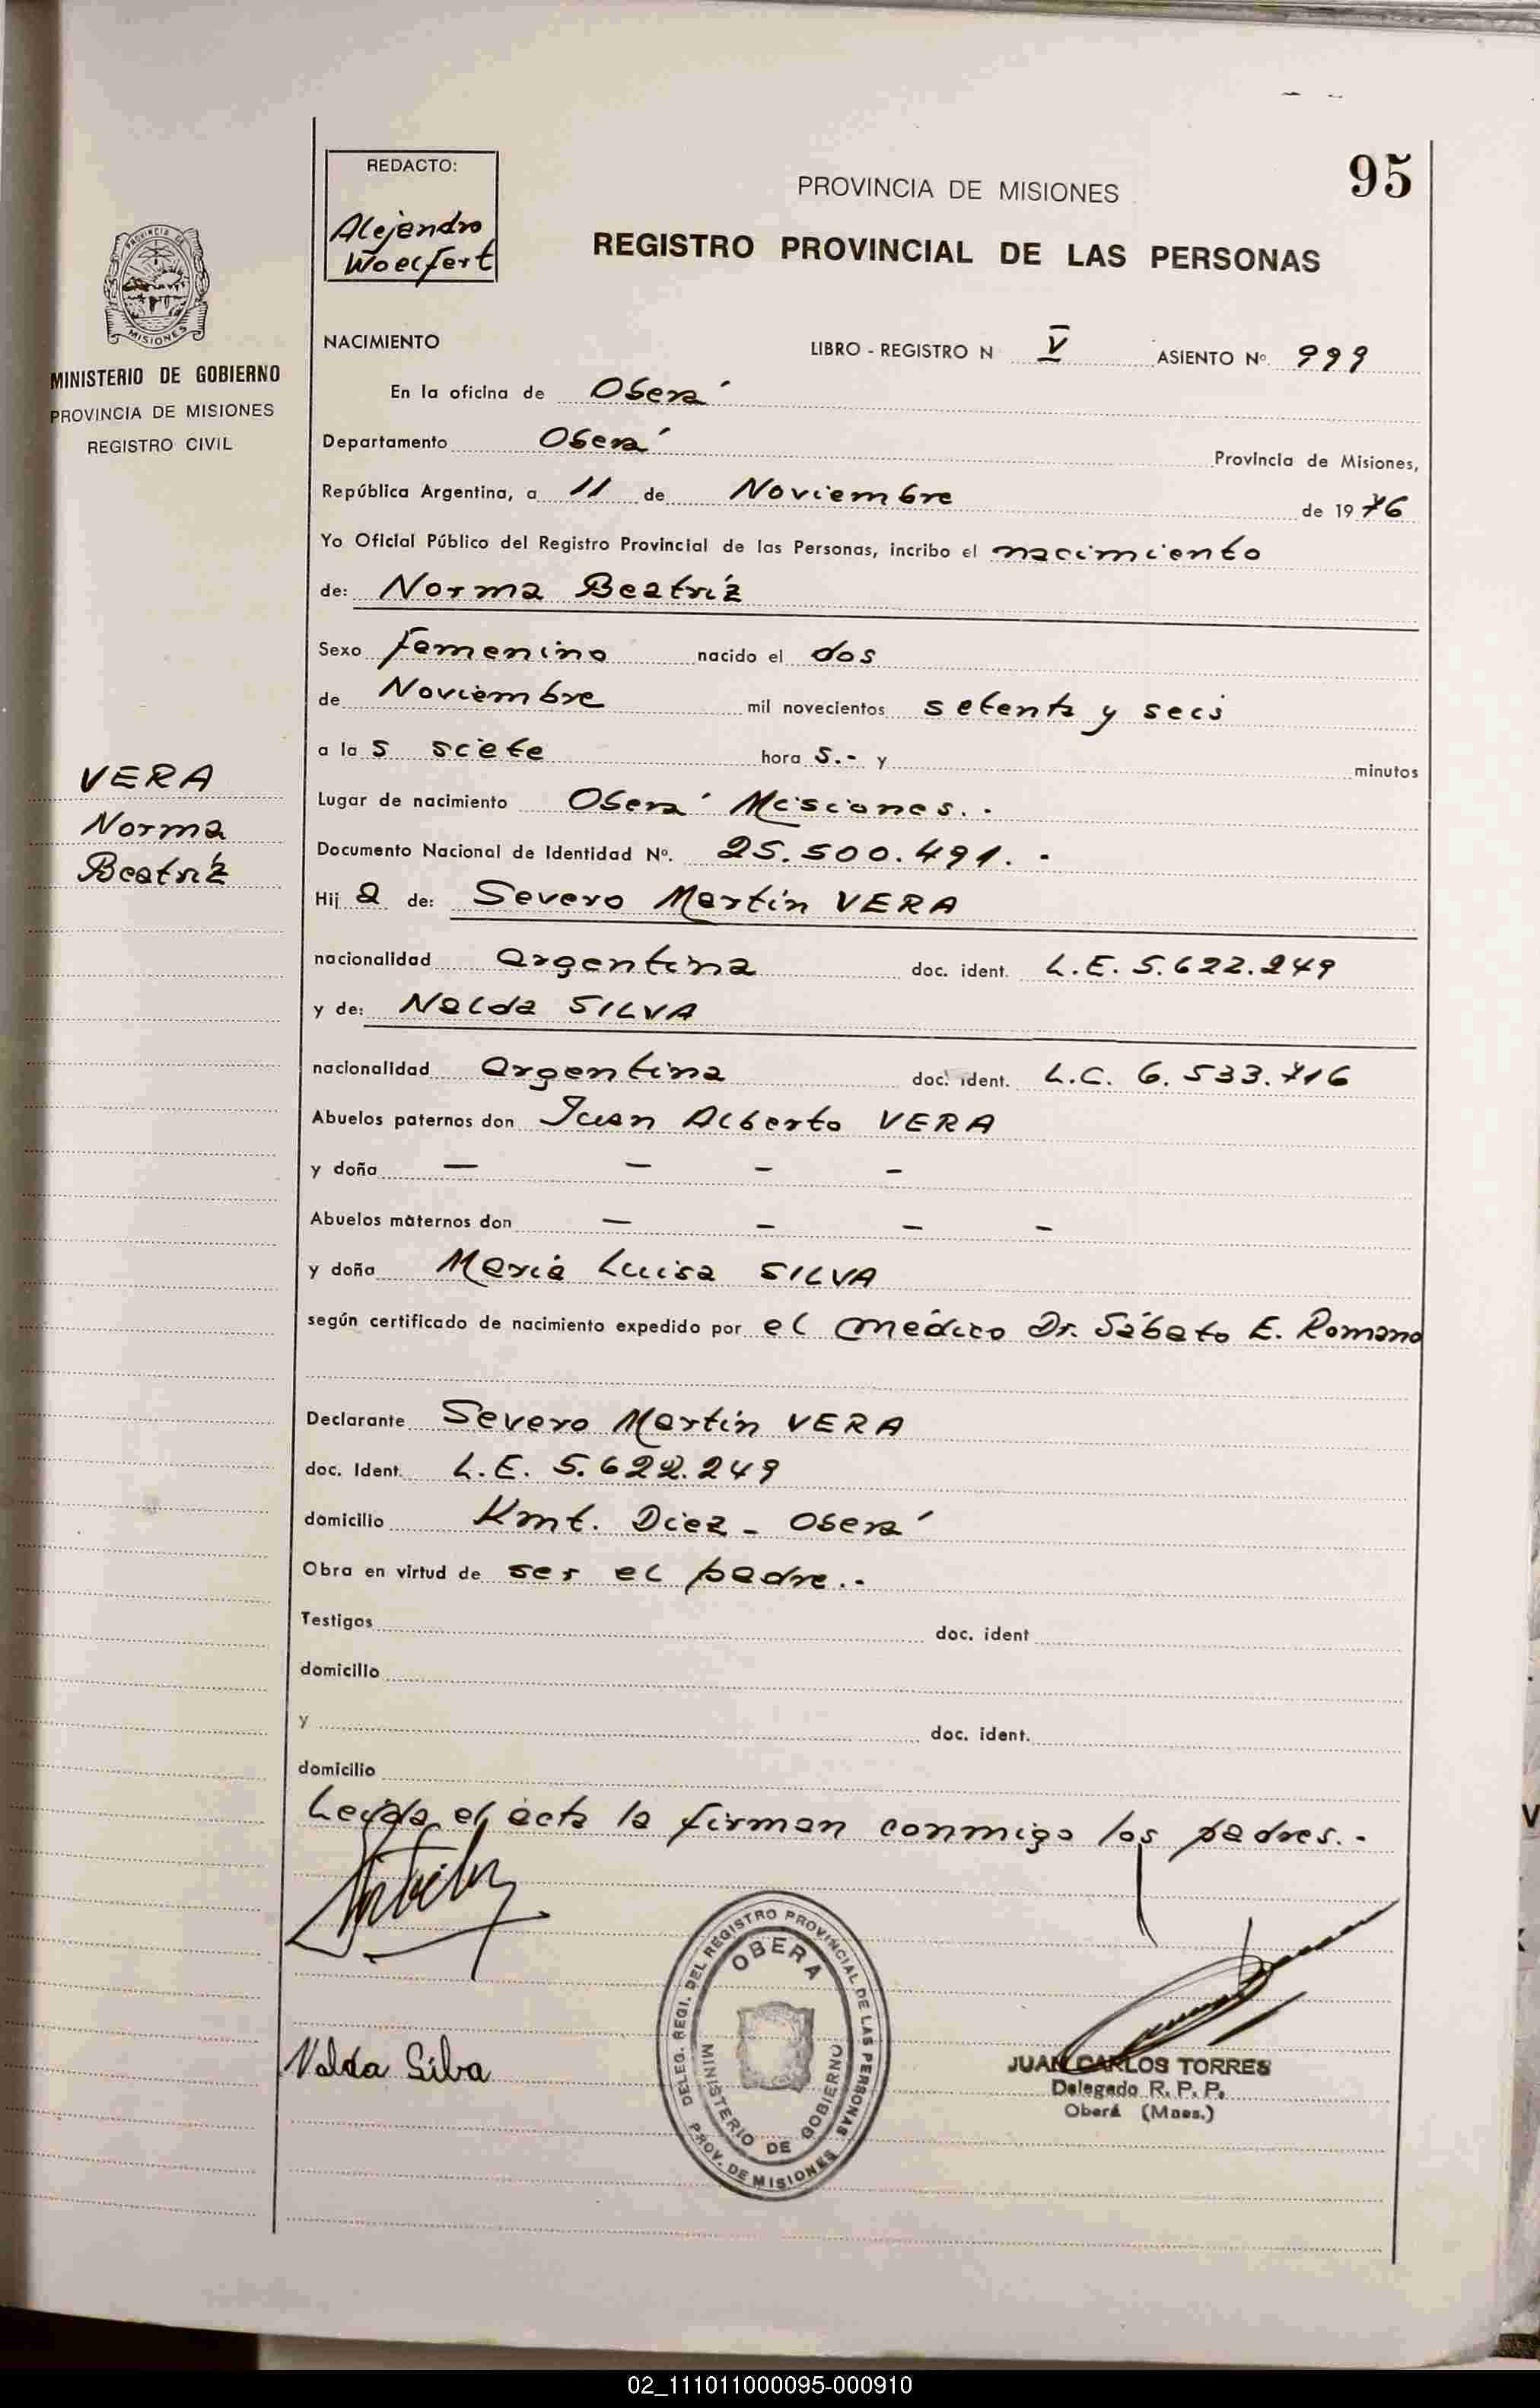 95
REDACTO:
Alejandro
Woelfert
PROVINCIA DE MISIONES
REGISTRO PROVINCIAL DE LAS PERSONAS
PROVINCIA DE
MISIONES
MINISTERIO DE GOBIERNO
PROVINCIA DE MISIONES
REGISTRO CIVIL
NACIMIENTO LIBRO - REGISTRO N V ASIENTO Nº. 999
En la oficina de Oberá
Departamento Oberá Provincia de Misiones,
República Argentina, a 11 de Noviembre de 1976
Yo Oficial Público del Registro Provincial de las Personas, incribo el nacimiento
de: Norma Beatríz
Sexo femenino nacido el dos
de Noviembre mil novecientos setenta y seis
a la s siete hora s.- y minutos
VERA
Norma
Beatríz
Lugar de nacimiento Oberá Misiones.-
Documento Nacional de Identidad Nº. 25.500.491.-
Hij a de: Severo Martín VERA
nacionalidad argentina doc. ident. L.E. 5.622.249
y de: Nelda SILVA
nacionalidad argentina doc. ident. L.C. 6.533.716
Abuelos paternos don Juan Alberto VERA
y doña — — — —
Abuelos maternos don — — — —
y doña María Luisa SILVA
según certificado de nacimiento expedido por el médico Dr. Sábato E. Romano
Declarante Severo Martín VERA
doc. Ident. L.E. 5.622.249
domicilio Kmt. Diez - Oberá
Obra en virtud de ser el padre.-
Testigos doc. ident
domicilio
y doc. ident.
domicilio
Leída el acta la firman conmigo los padres.-
DELEG. REGI. DEL REGISTRO PROVINCIAL DE LAS PERSONAS
OBERA
MINISTERIO DE GOBIERNO
PROV. DE MISIONES
Nalda Silva
JUAN CARLOS TORRES
Delegado R. P. P.
Oberá (Mnes.)
02_111011000095-000910